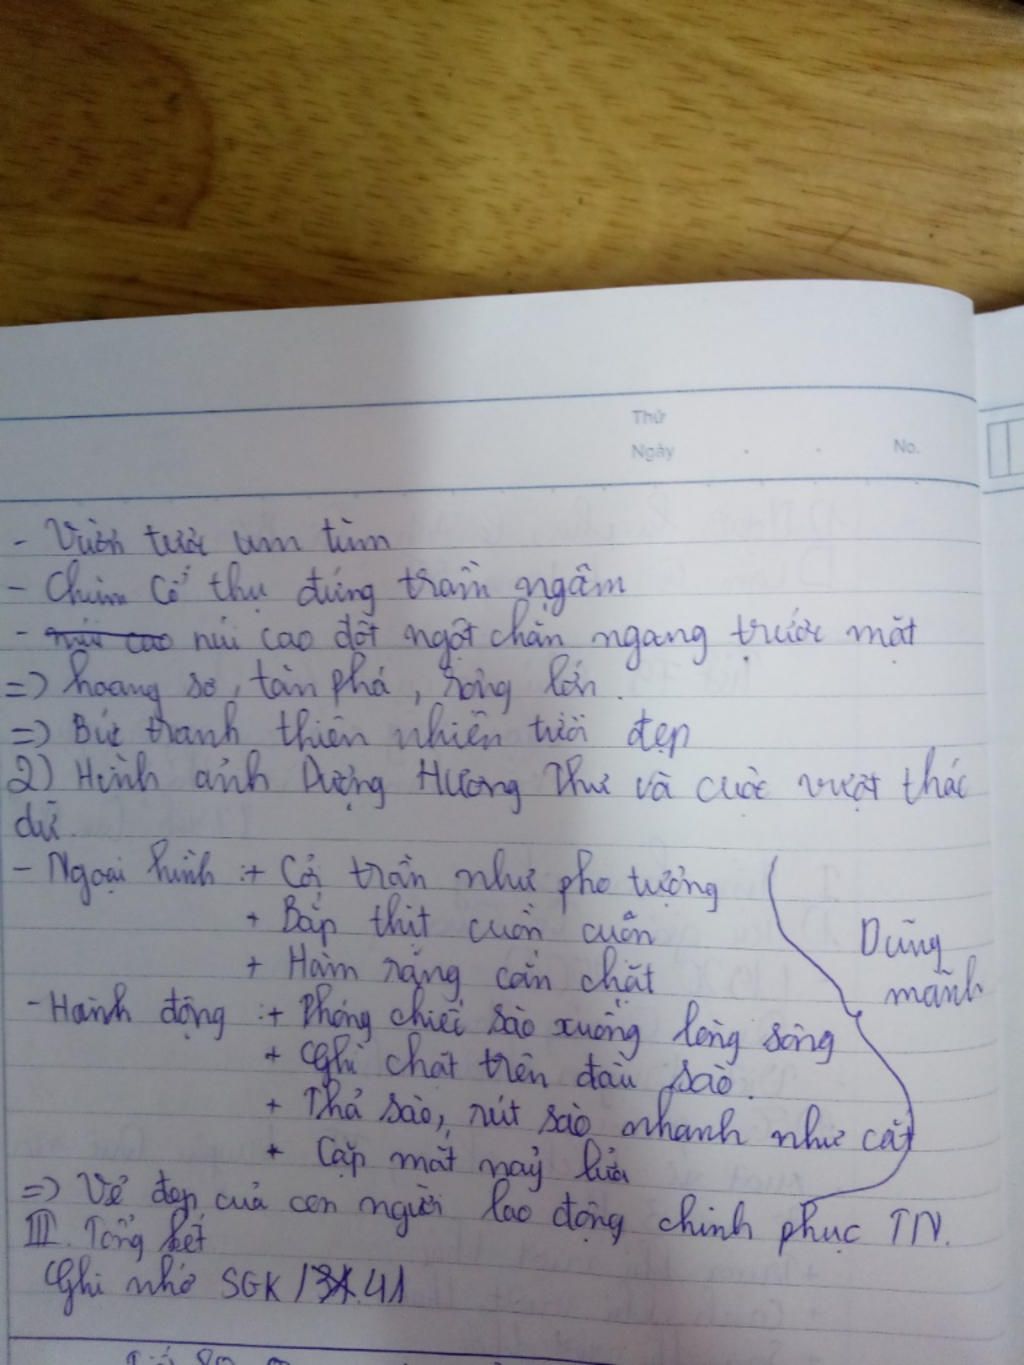 Thứ
Ngày . . No.
- Vườn tược um tùm
- Chùm cổ thụ đứng trầm ngâm
- núi cao núi cao đột ngột chắn ngang trước mặt
=> hoang sơ, tàn phá, rộng lớn.
=> Bức tranh thiên nhiên tươi đẹp
2) Hình ảnh Dượng Hương Thư và cuộc vượt thác
dữ.
- Ngoại hình :+ Cởi trần như pho tượng
+ Bắp thịt cuồn cuộn
+ Hàm răng cắn chặt
Dũng
mãnh
- Hành động :+ Phóng chiếc sào xuống lòng sông
+ Ghì chặt trên đầu sào.
+ Thả sào, rút sào nhanh như cắt
+ Cặp mắt nảy lửa
=> Vẻ đẹp của con người lao động chinh phục TN.
III. Tổng kết
Ghi nhớ SGK / 41